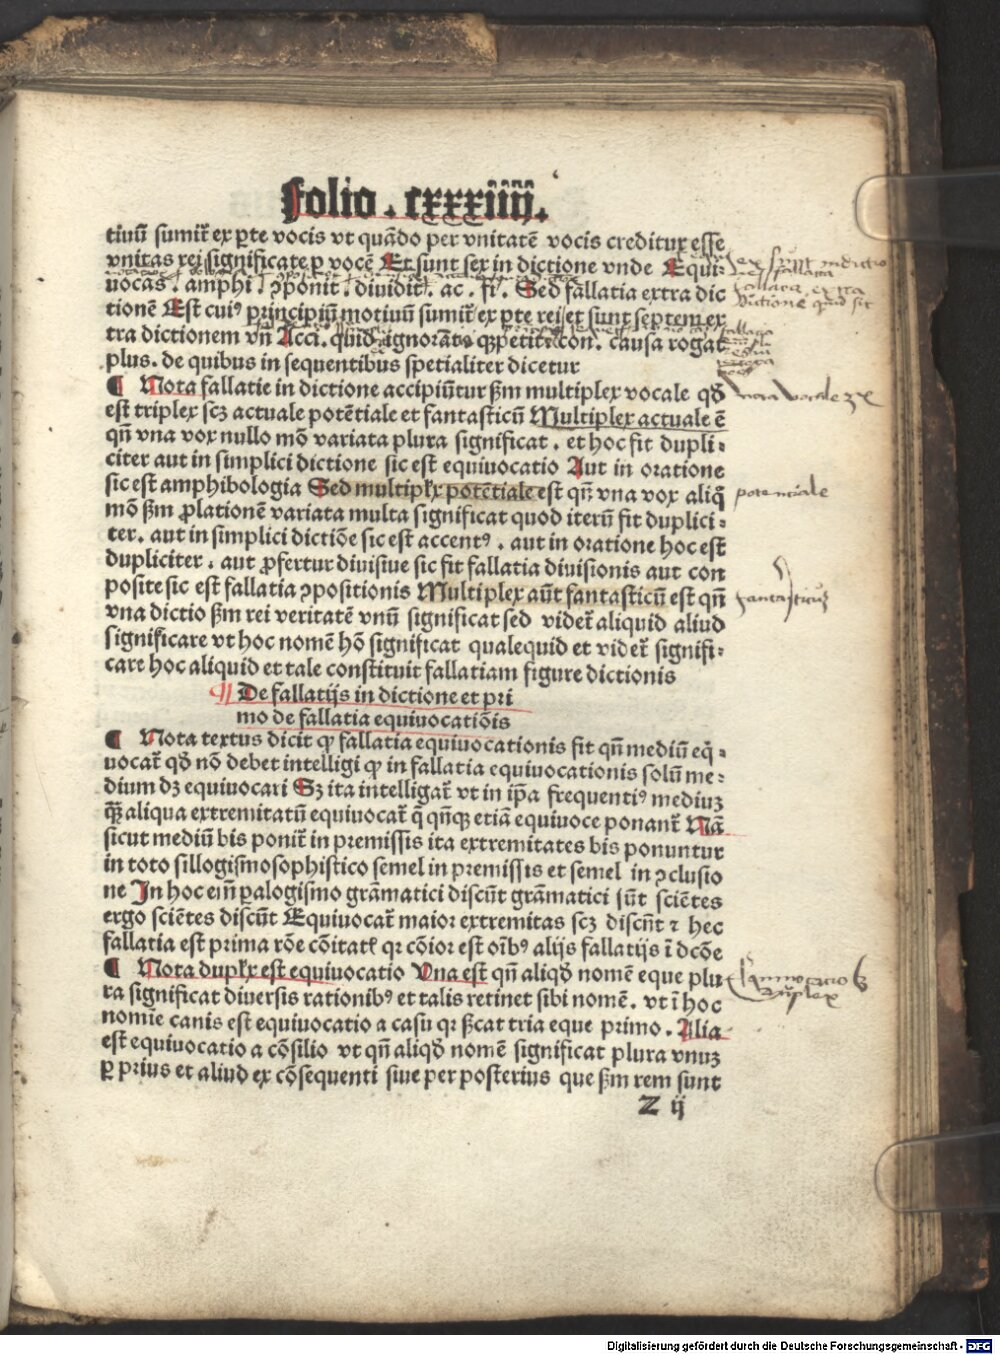 folio . cxxxiiij.
tiuū sumit̄ ex ꝑte vocis vt quādo per vnitatē vocis creditur esse
vnitas rei significate ꝑ vocē Et sunt sex in dictione vnde Equi-
uocas . amphi . ꝯponit . diuidit . ac . fi . Sed fallatia extra dic
tionē Est cui⁹ principiū motiuū sumit̄ ex ꝑte rei et sunt septem ex
tra dictionem vn̄ Acci . quid . ignorāt petit con . causa rogat
plus . de quibus in sequentibus spetialiter dicetur
¶ Nota fallatie in dictione accipiūtur ẜm multiplex vocale qđ
est triplex scꝫ actuale potētiale et fantasticū Multiplex actuale ē
qn̄ vna vox nullo mō variata plura significat . et hoc fit dupli-
citer aut in simplici dictione sic est equiuocatio Aut in oratione
sic est amphibologia Sed multipłx potētiale est qn̄ vna vox aliq̄
mō ẜm ꝓlationē variata multa significat quod iterū fit duplici-
ter . aut in simplici dictiōe sic est accent⁹ . aut in oratione hoc est
dupliciter . aut ꝓfertur diuisiue sic fit fallatia diuisionis aut con
posite sic est fallatia ꝯpositionis Multiplex aūt fantasticū est qn̄
vna dictio ẜm rei veritatē vnū significat sed videt̄ aliquid aliud
significare vt hoc nomē hō significat qualequid et videt̄ signifi-
care hoc aliquid et tale constituit fallatiam figure dictionis
¶ De fallatijs in dictione et pri
mo de fallatia equiuocatiōis
¶ Nota textus dicit ꝙ fallatia equiuocationis fit qn̄ mediū eq̄-
uocat̄ qđ nō debet intelligi ꝙ in fallatia equiuocationis solū me-
dium dꝫ equiuocari Sꝫ ita intelligat̄ vt in ip̄a frequenti⁹ mediuꝫ
qꝫ aliqua extremitatū equiuocat̄ q̄ qn̄qꝫ etiā equiuoce ponant̄ Nā
sicut mediū bis ponit̄ in premissis ita extremitates bis ponuntur
in toto sillogismo sophistico semel in premissis et semel in ꝯclusio
ne In hoc eīn ꝑalogismo grāmatici discūt grāmatici sūt sciētes
ergo sciētes discūt Equiuocat̄ maior extremitas scꝫ discūt ⁊ hec
fallatia est prima rōe cōitatꝭ qꝛ cōior est oīb⁹ alijs fallatijs ī dcōe
¶ Nota dupłx est equiuocatio Vna est qn̄ aliqđ nomē eque plu
ra significat diuersis rationib⁹ et talis retinet sibi nomē . vt ī hoc
nomīe canis est equiuocatio a casu qꝛ ẜcat tria eque primo . Alia
est equiuocatio a cōsilio vt qn̄ aliqđ nomē significat plura vnuꝫ
ꝑ prius et aliud ex cōsequenti siue per posterius que ẜm rem sunt
Z ij
potenciale
fantasticuꝫ
Digitalisierung gefördert durch die Deutsche Forschungsgemeinschaft - DFG